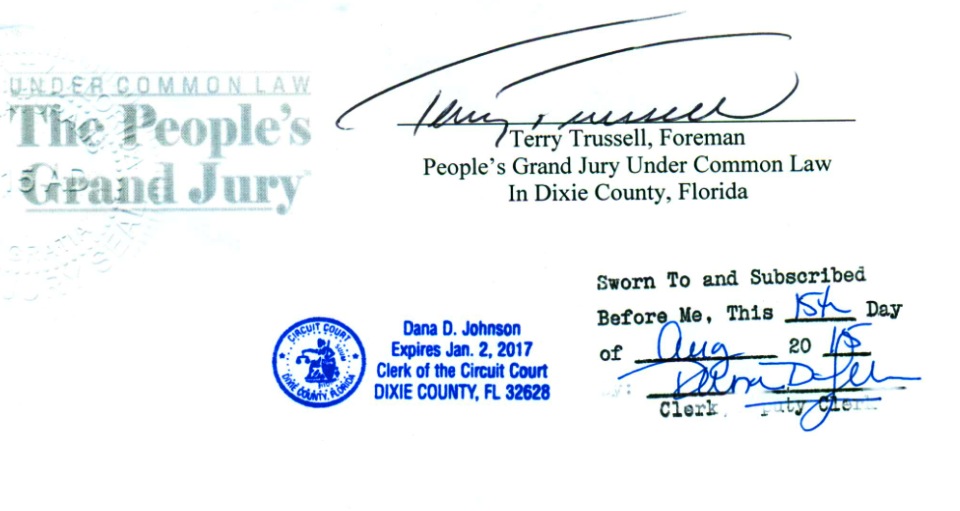 UNDER COMMON LAW
The People's
Grand Jury
Terry Trussell
Terry Trussell, Foreman
People's Grand Jury Under Common Law
In Dixie County, Florida
Sworn To and Subscribed
Before Me, This 15th Day
of Aug 20 15
Dana D. Johnson
Clerk, Deputy Clerk
CIRCUIT COURT
DIXIE COUNTY, FLORIDA
Dana D. Johnson
Expires Jan. 2, 2017
Clerk of the Circuit Court
DIXIE COUNTY, FL 32628